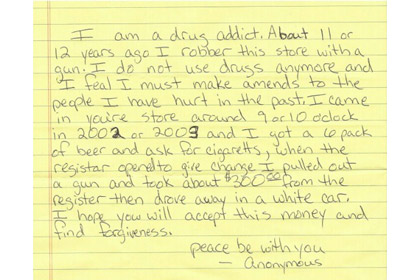 I am a drug addict. About 11 or
12 years ago I robber this store with a
gun. I do not use drugs anymore and
I feal I must make amends to the
people I have hurt in the past. I came
in you're store around 9 or 10 o'clock
in 2002 or 2003 and I got a 6 pack
of beer and ask for cigaretts, when the
registar opend to give change I pulled out
a gun and took about $300.00 from the
register then drove away in a white car.
I hope you will accept this money and
find forgiveness.
peace be with you
— Anonymous